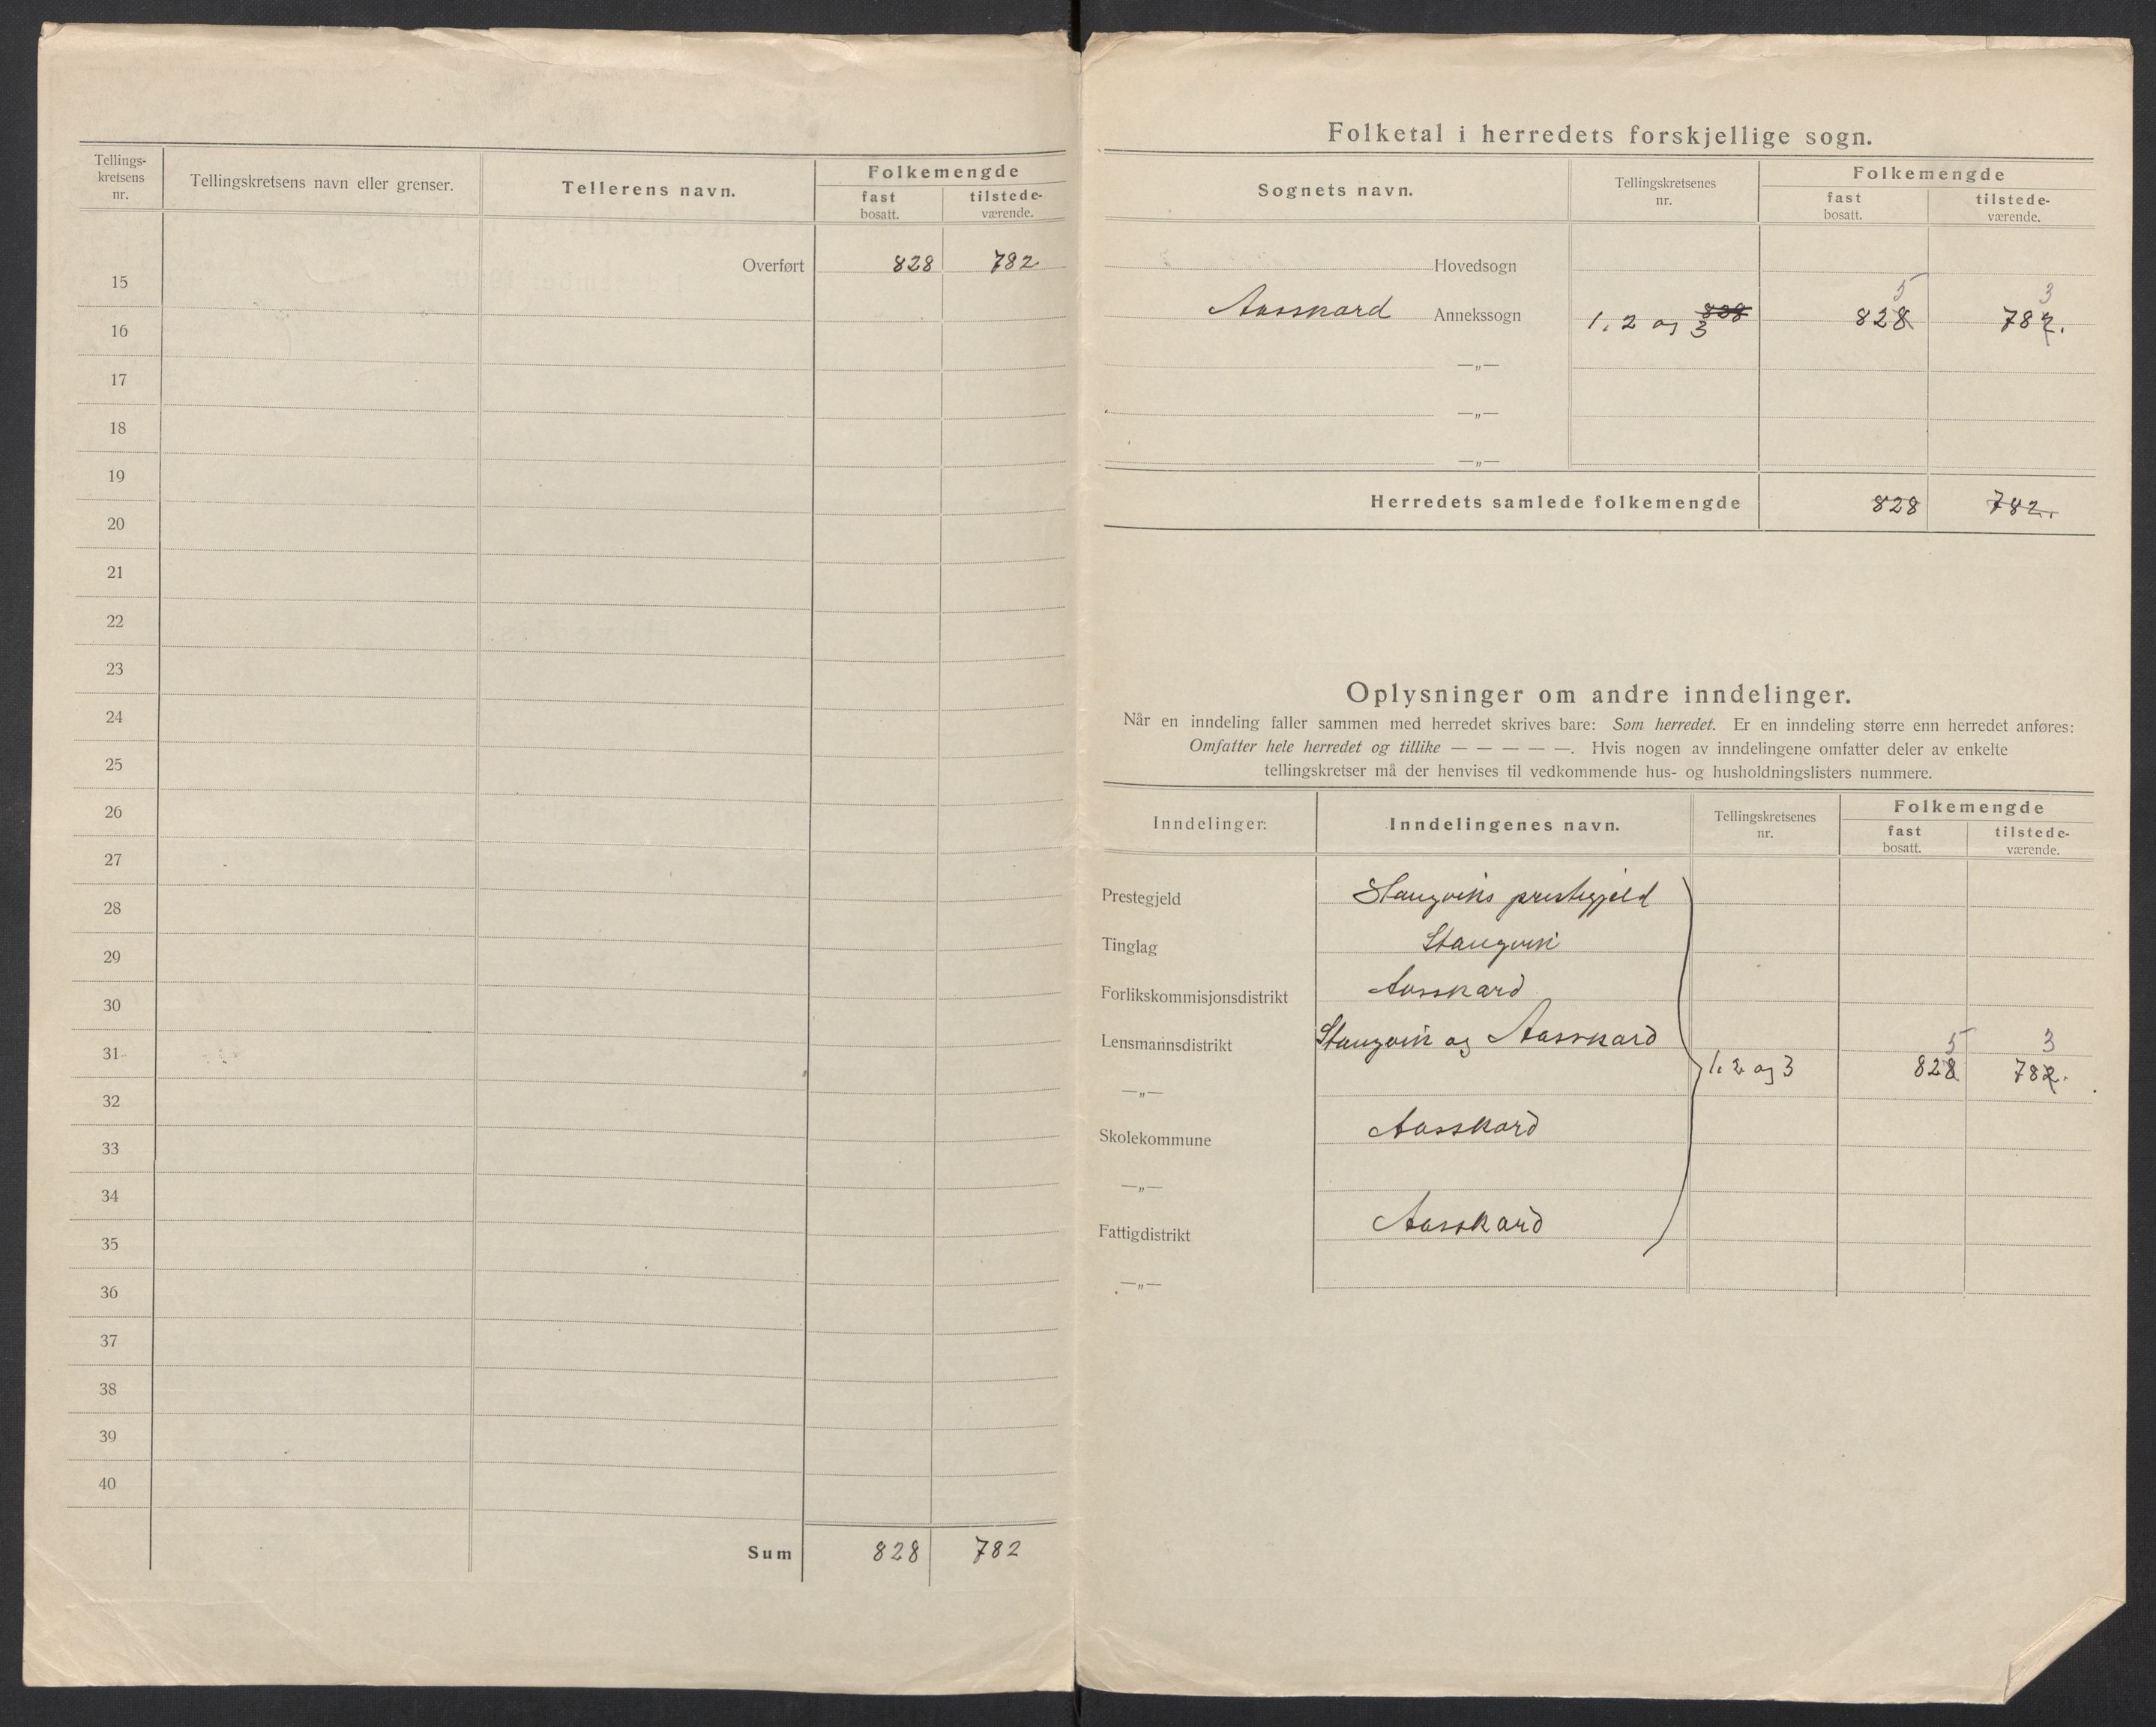 Tellings-
kretsens
nr.
Tellingskretsens navn eller grenser.
Tellerens navn.
Folkemengde
fast
bosatt.
tilstede-
værende.
Overført 828 782
15
16
17
18
19
20
21
22
23
24
25
26
27
28
29
30
31
32
33
34
35
36
37
38
39
40
Sum 828 782
Folketal i herredets forskjellige sogn.
Sognets navn.
Tellingskretsenes
nr.
Folkemengde
fast
bosatt.
tilstede-
værende.
Hovedsogn
5 3
Aasskard Annekssogn 1, 2 og 3 828 828 782.
—„—
—„—
—„—
Herredets samlede folkemengde 828 782.
Oplysninger om andre inndelinger.
Når en inndeling faller sammen med herredet skrives bare: Som herredet. Er en inndeling større enn herredet anføres:
Omfatter hele herredet og tillike — — — — —. Hvis nogen av inndelingene omfatter deler av enkelte
tellingskretser må der henvises til vedkommende hus- og husholdningslisters nummere.
Inndelinger.
Inndelingenes navn.
Tellingskretsenes
nr.
Folkemengde
fast
bosatt.
tilstede-
værende.
Prestegjeld Stangviks prestegjeld
Tinglag Stangvik
Forlikskommisjonsdistrikt Aasskard
Lensmannsdistrikt Stangvik og Aasskard 5 3
—„— 1, 2 og 3 828 782.
Skolekommune Aasskard
—„—
Fattigdistrikt Aasskard
—„—